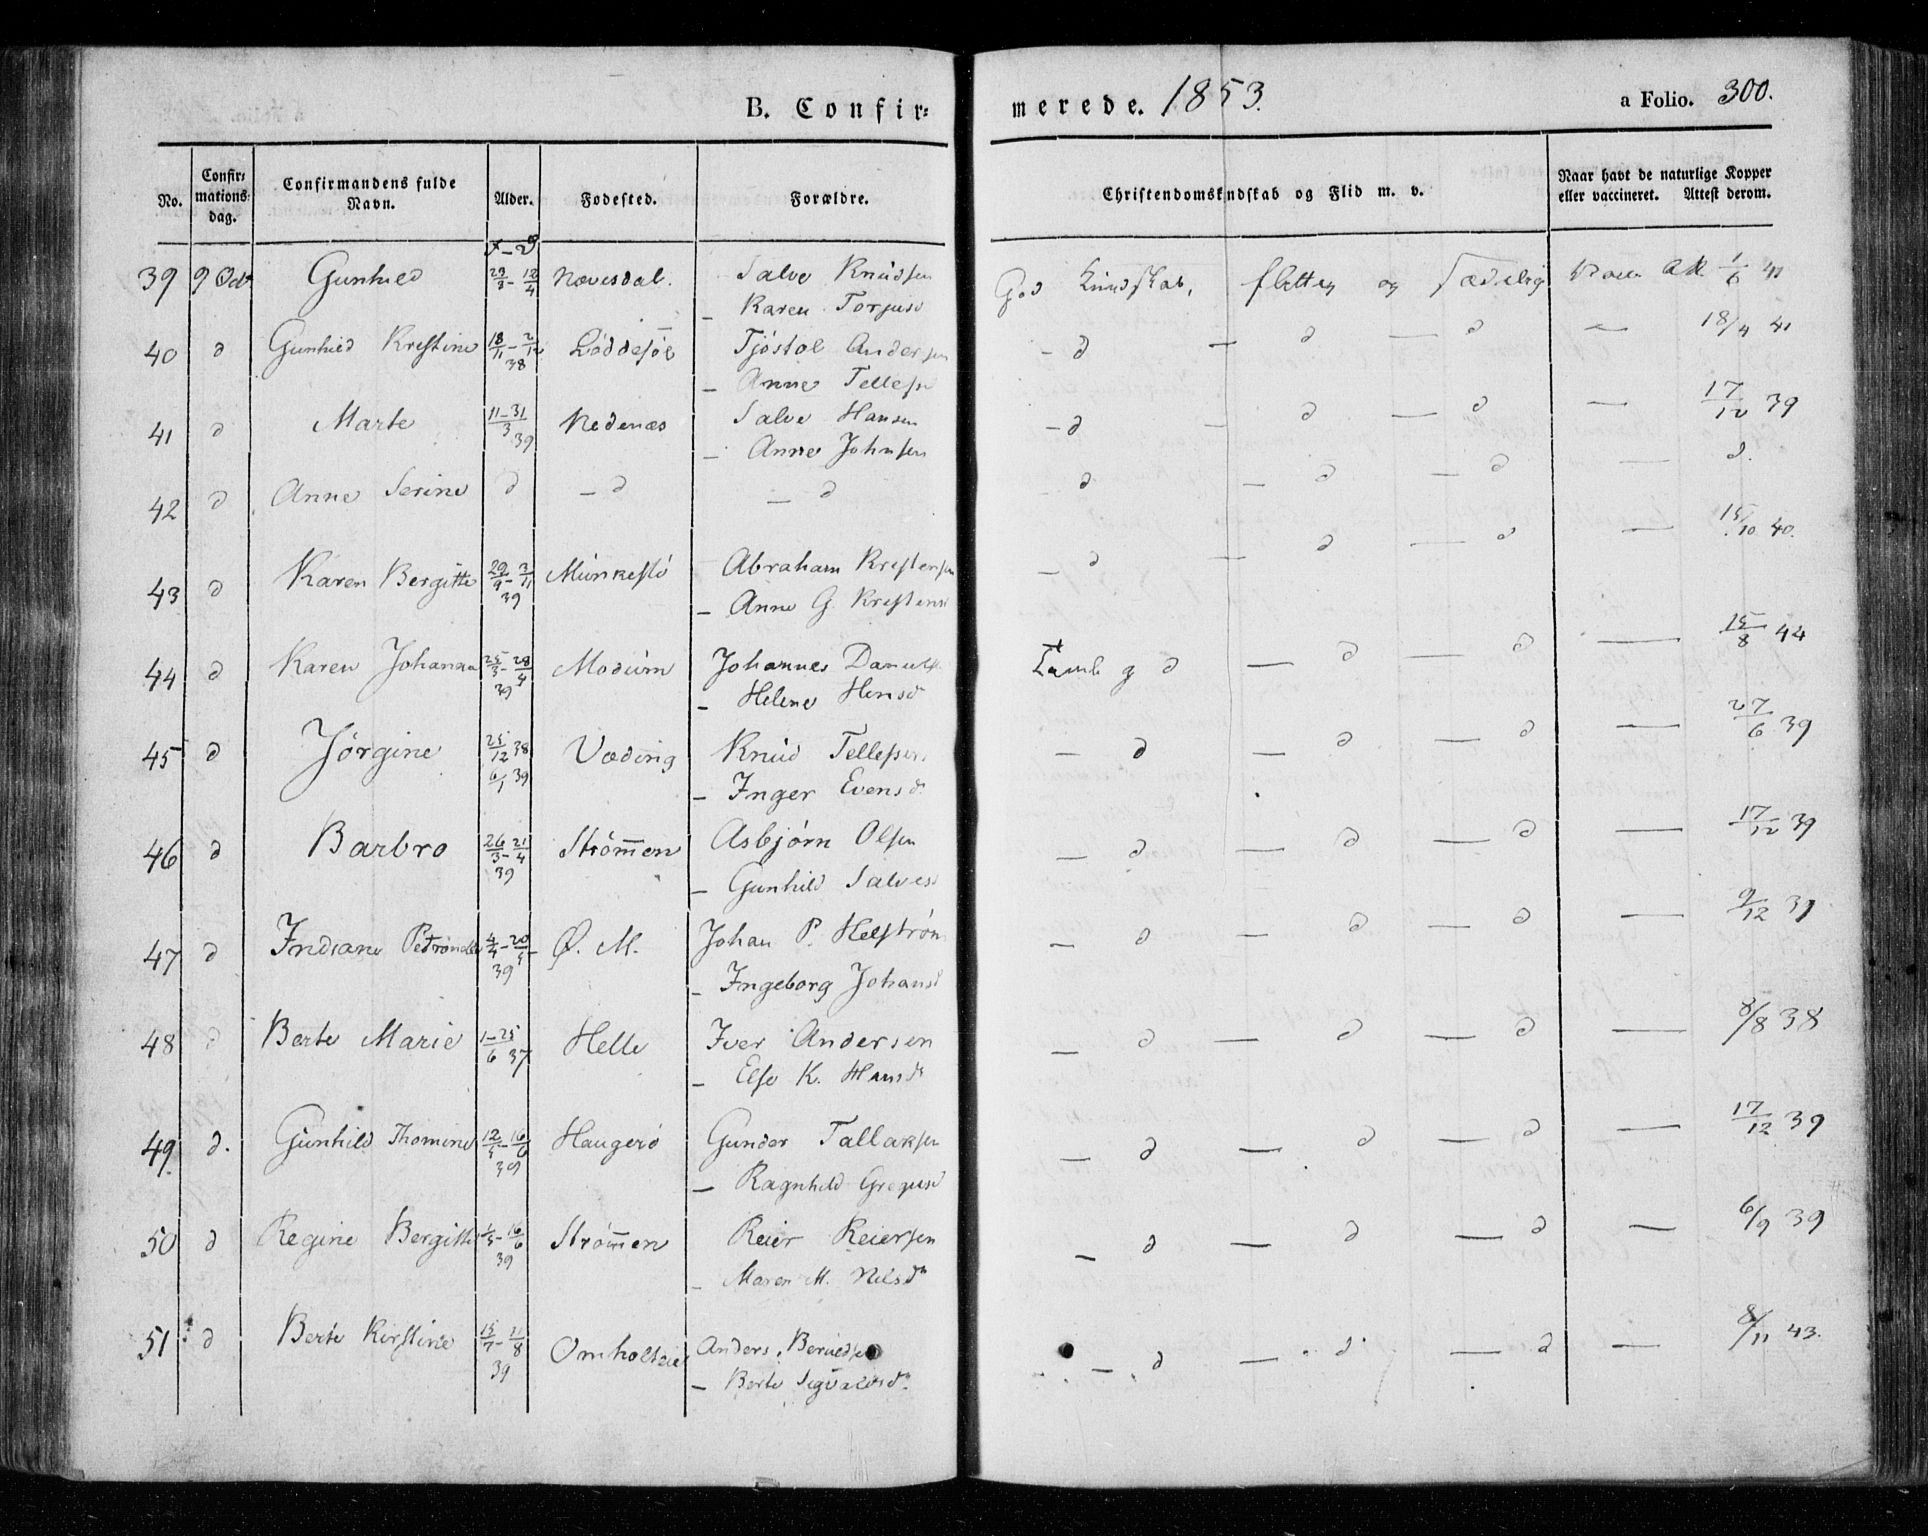 B. Confir=
merede. 1853.
a Folio. 300.
No.
Confir=
mations=
dag.
Confirmandens fulde
Navn.
Alder.
Fødested.
Forældre.
Christendomskndskab og Flid m. v.
Naar havt de naturlige Kopper
eller vaccineret. Attest derom.
39 9 Oct Gunhild 12/4 Salve Knudsen God Kundskab, flittig og sædelig 1/6 41
– Karen Torjusd
40 d Gunhild Kristine 18/11 – 2/12 38 Løddesøl Tjøstol Andersen – d – d – d – 18/4 41
– Anne Tellefsd
41 d Marte 11–31/3 39 Nedenæs Salve Hansen – d – d – d – 17/12 39
– Anne Johnsen
42 d Anne Serine d – d – d – d – d – d – d.
43 d Karen Bergitte 29/9 – 3/11 39 Abraham Kristensen – d – d – d – 15/10 40.
– Anne G. Kristensd
44 d Karen Johanna 25/3 – 28/4 39 Modium Johannes Danielsen g d – d – d – 15/8 44
– Helene
45 d Jørgine 25/12 38 Væding Knud Tellefsen – d – d – d – 27/6 39
6/1 39 – Inger Evensd
46 d Barbro 26/3 – 21/4 39 Strømmen Asbjørn Olsen – d – d – d – 17/12 39
– Gunhild Salvesd
47 d Indiane 39 Ø. M. Johan P. Helstrøm – d – d – d – 9/12 39
– Ingeborg Johansd
48 d Berte Marie 1–25/6 37 Helle Iver Andersen – d – d – d – 8/8 38
– Else K. Hansd
49. d. Gunhild Thomine 12/5 – 16/6 39 Haugerø Gunder Tallaksen – d – d – d – 17/12 39
– Ragnhild Gregusd
50 d Regine Bergitte 16/6 39 Strømmen Reier Reiersen – d – d – d – 6/9 39
– Maren M. Nilsd
51 d Berte Kirstine 39 Anders – d – d – d – 8/11 43.
– Berte Sigvaldsd.